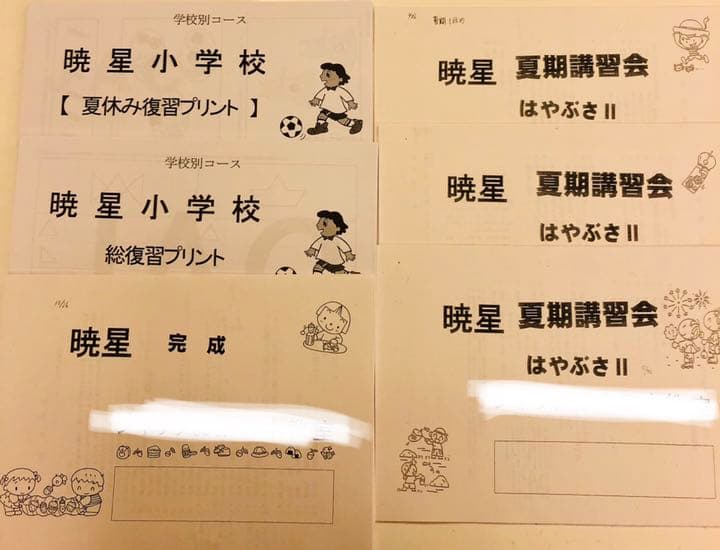 学校別コース
暁星小学校
【 夏休み復習プリント 】
学校別コース
暁星小学校
総復習プリント
暁星 完成
暁星 夏期講習会
はやぶさⅡ
暁星 夏期講習会
はやぶさⅡ
暁星 夏期講習会
はやぶさⅡ